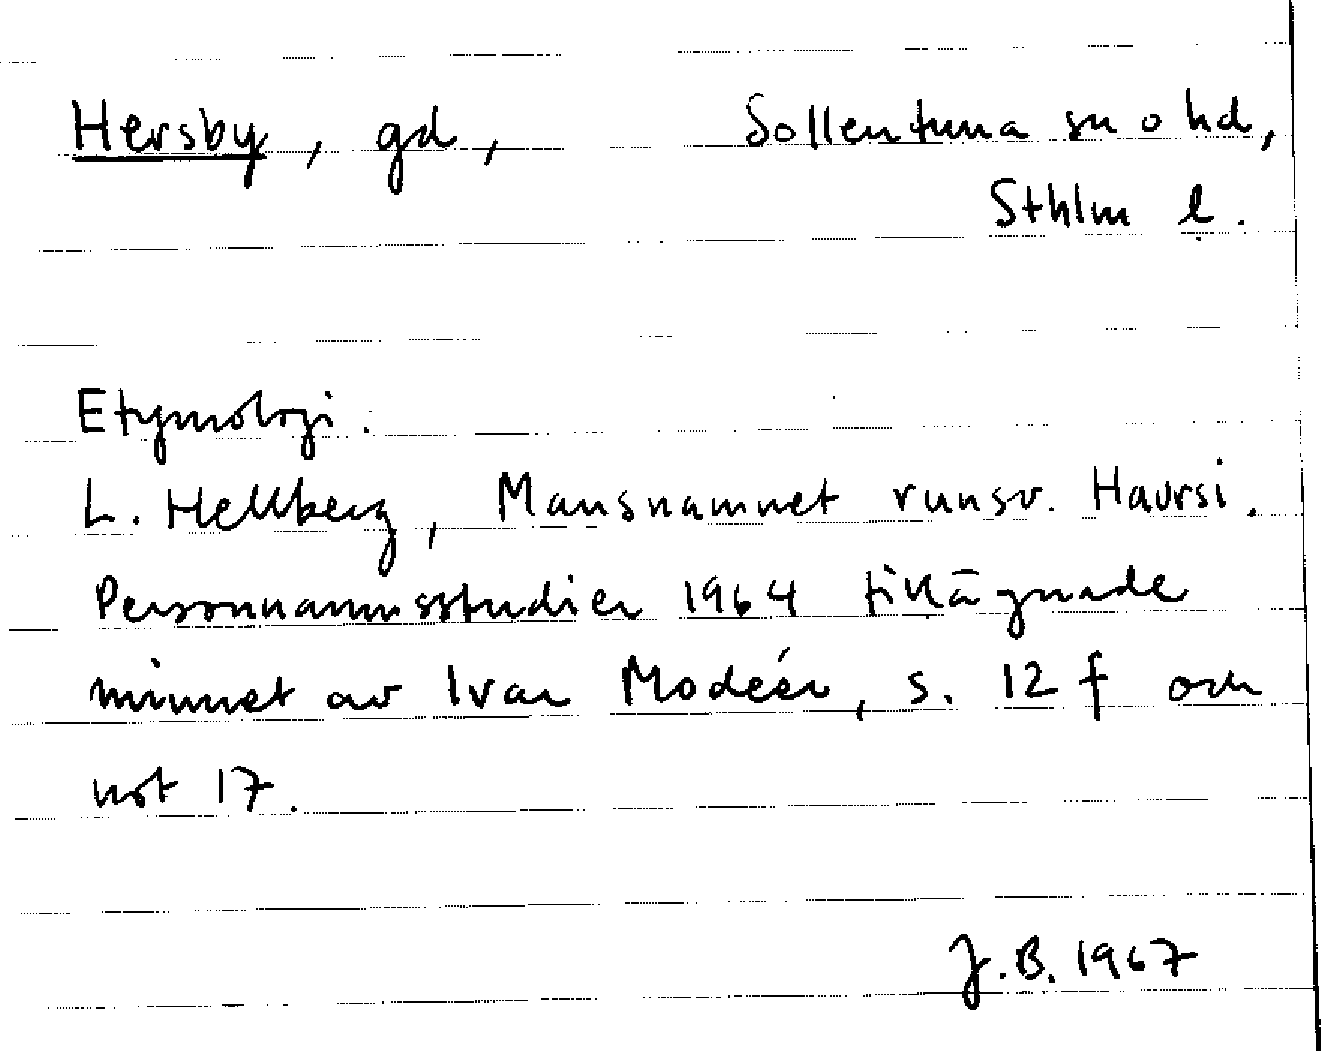 Hersby, gd, Sollentuna sn o hd,
Sthlm l.
Etymologi.
L. Hellberg, Mansnamnet runsv. Haursi.
Personnamnsstudier 1964 tillägnade
minnet av Ivar Modéer, s. 12 f och
not 17.
J.B. 1967